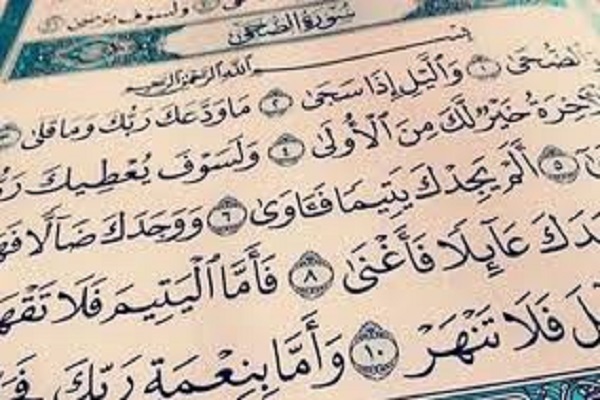 ولسوف يرضى
سورة الضحى
بسم الله الرحمن الرحيم
وَٱلضُّحَىٰ ١ وَٱلَّيْلِ إِذَا سَجَىٰ ٢ مَا وَدَّعَكَ رَبُّكَ وَمَا قَلَىٰ
خَيْرٌ لَّكَ مِنَ ٱلْأُولَىٰ ٤ وَلَسَوْفَ يُعْطِيكَ
٥ أَلَمْ يَجِدْكَ يَتِيمًا فَـَٔاوَىٰ ٦ وَوَجَدَكَ ضَآلًّا
عَآئِلًا فَأَغْنَىٰ ٨ فَأَمَّا ٱلْيَتِيمَ فَلَا تَقْهَ
فَلَا تَنْهَرْ ١٠ وَأَمَّا بِنِعْمَةِ رَبِّكَ